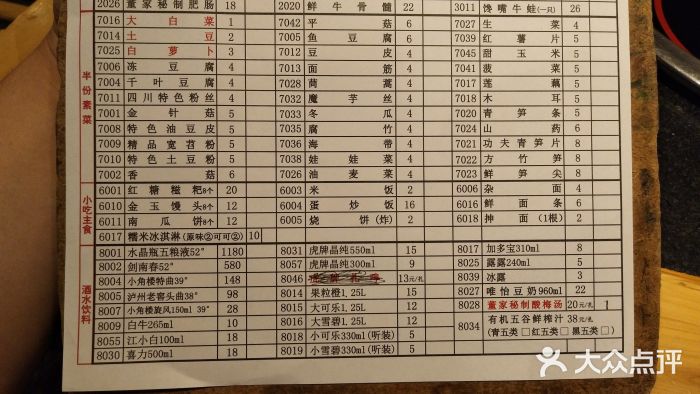 2026 董家秘制肥肠 18 2020 鲜牛骨髓 22 3011 馋嘴牛蛙(一只) 26
半份素菜
7016 大白菜 1 7042 平菇 6 7027 生菜 4
7014 土豆 2 7005 鱼豆腐 6 7039 红薯片 5
7025 白萝卜 3 7012 豆皮 4 7045 甜玉米 5
7006 冻豆腐 4 7013 面筋 4 7041 菠菜 5
7004 千叶豆腐 4 7028 茼蒿 4 7017 莲藕 5
7011 四川特色粉丝 4 7032 魔芋丝 4 7018 木耳 5
7001 金针菇 5 7033 冬瓜 4 7020 青笋条 5
7008 特色油豆皮 5 7035 腐竹 4 7024 山药 6
7009 精品宽苕粉 5 7036 海带 4 7021 功夫青笋片 8
7010 特色土豆粉 5 7038 娃娃菜 4 7022 方竹笋 8
7002 香菇 6 7026 油麦菜 4 7023 鲜笋尖 8
小吃主食
6001 红糖糍粑8个 20 6003 米饭 2 6006 杂面 4
6010 金玉馒头8个 12 6004 蛋炒饭 16 6016 鲜面条 6
6011 南瓜饼8个 12 6005 烧饼(炸) 2 6018 抻面(1根) 2
6017 糯米冰淇淋(原味②可可②) 10
酒水饮料
8001 水晶瓶五粮液52° 1180 8031 虎牌晶纯550ml 15 8017 加多宝310ml 8
8002 剑南春52° 580 8057 虎牌晶纯300ml 9 8025 露露240ml 5
8004 小角楼特曲39° 148 8046 13元/扎 8039 冰露 3
8005 泸州老窖头曲38° 98 8014 果粒橙1.25L 12 8027 唯怡豆奶960ml 22
8007 小角楼旋风150ml 39° 28 8015 大可乐1.25L 12 8028 董家秘制酸梅汤 20元/扎 1
8009 白牛265ml 10 8016 大雪碧1.25L 12 8034 有机五谷鲜榨汁 38元/扎
8055 江小白100ml 18 8018 小可乐330ml(听装) 5 (青五类□红五类□黑五类□)
8030 喜力500ml 18 8019 小雪碧330ml(听装) 5
大众点评